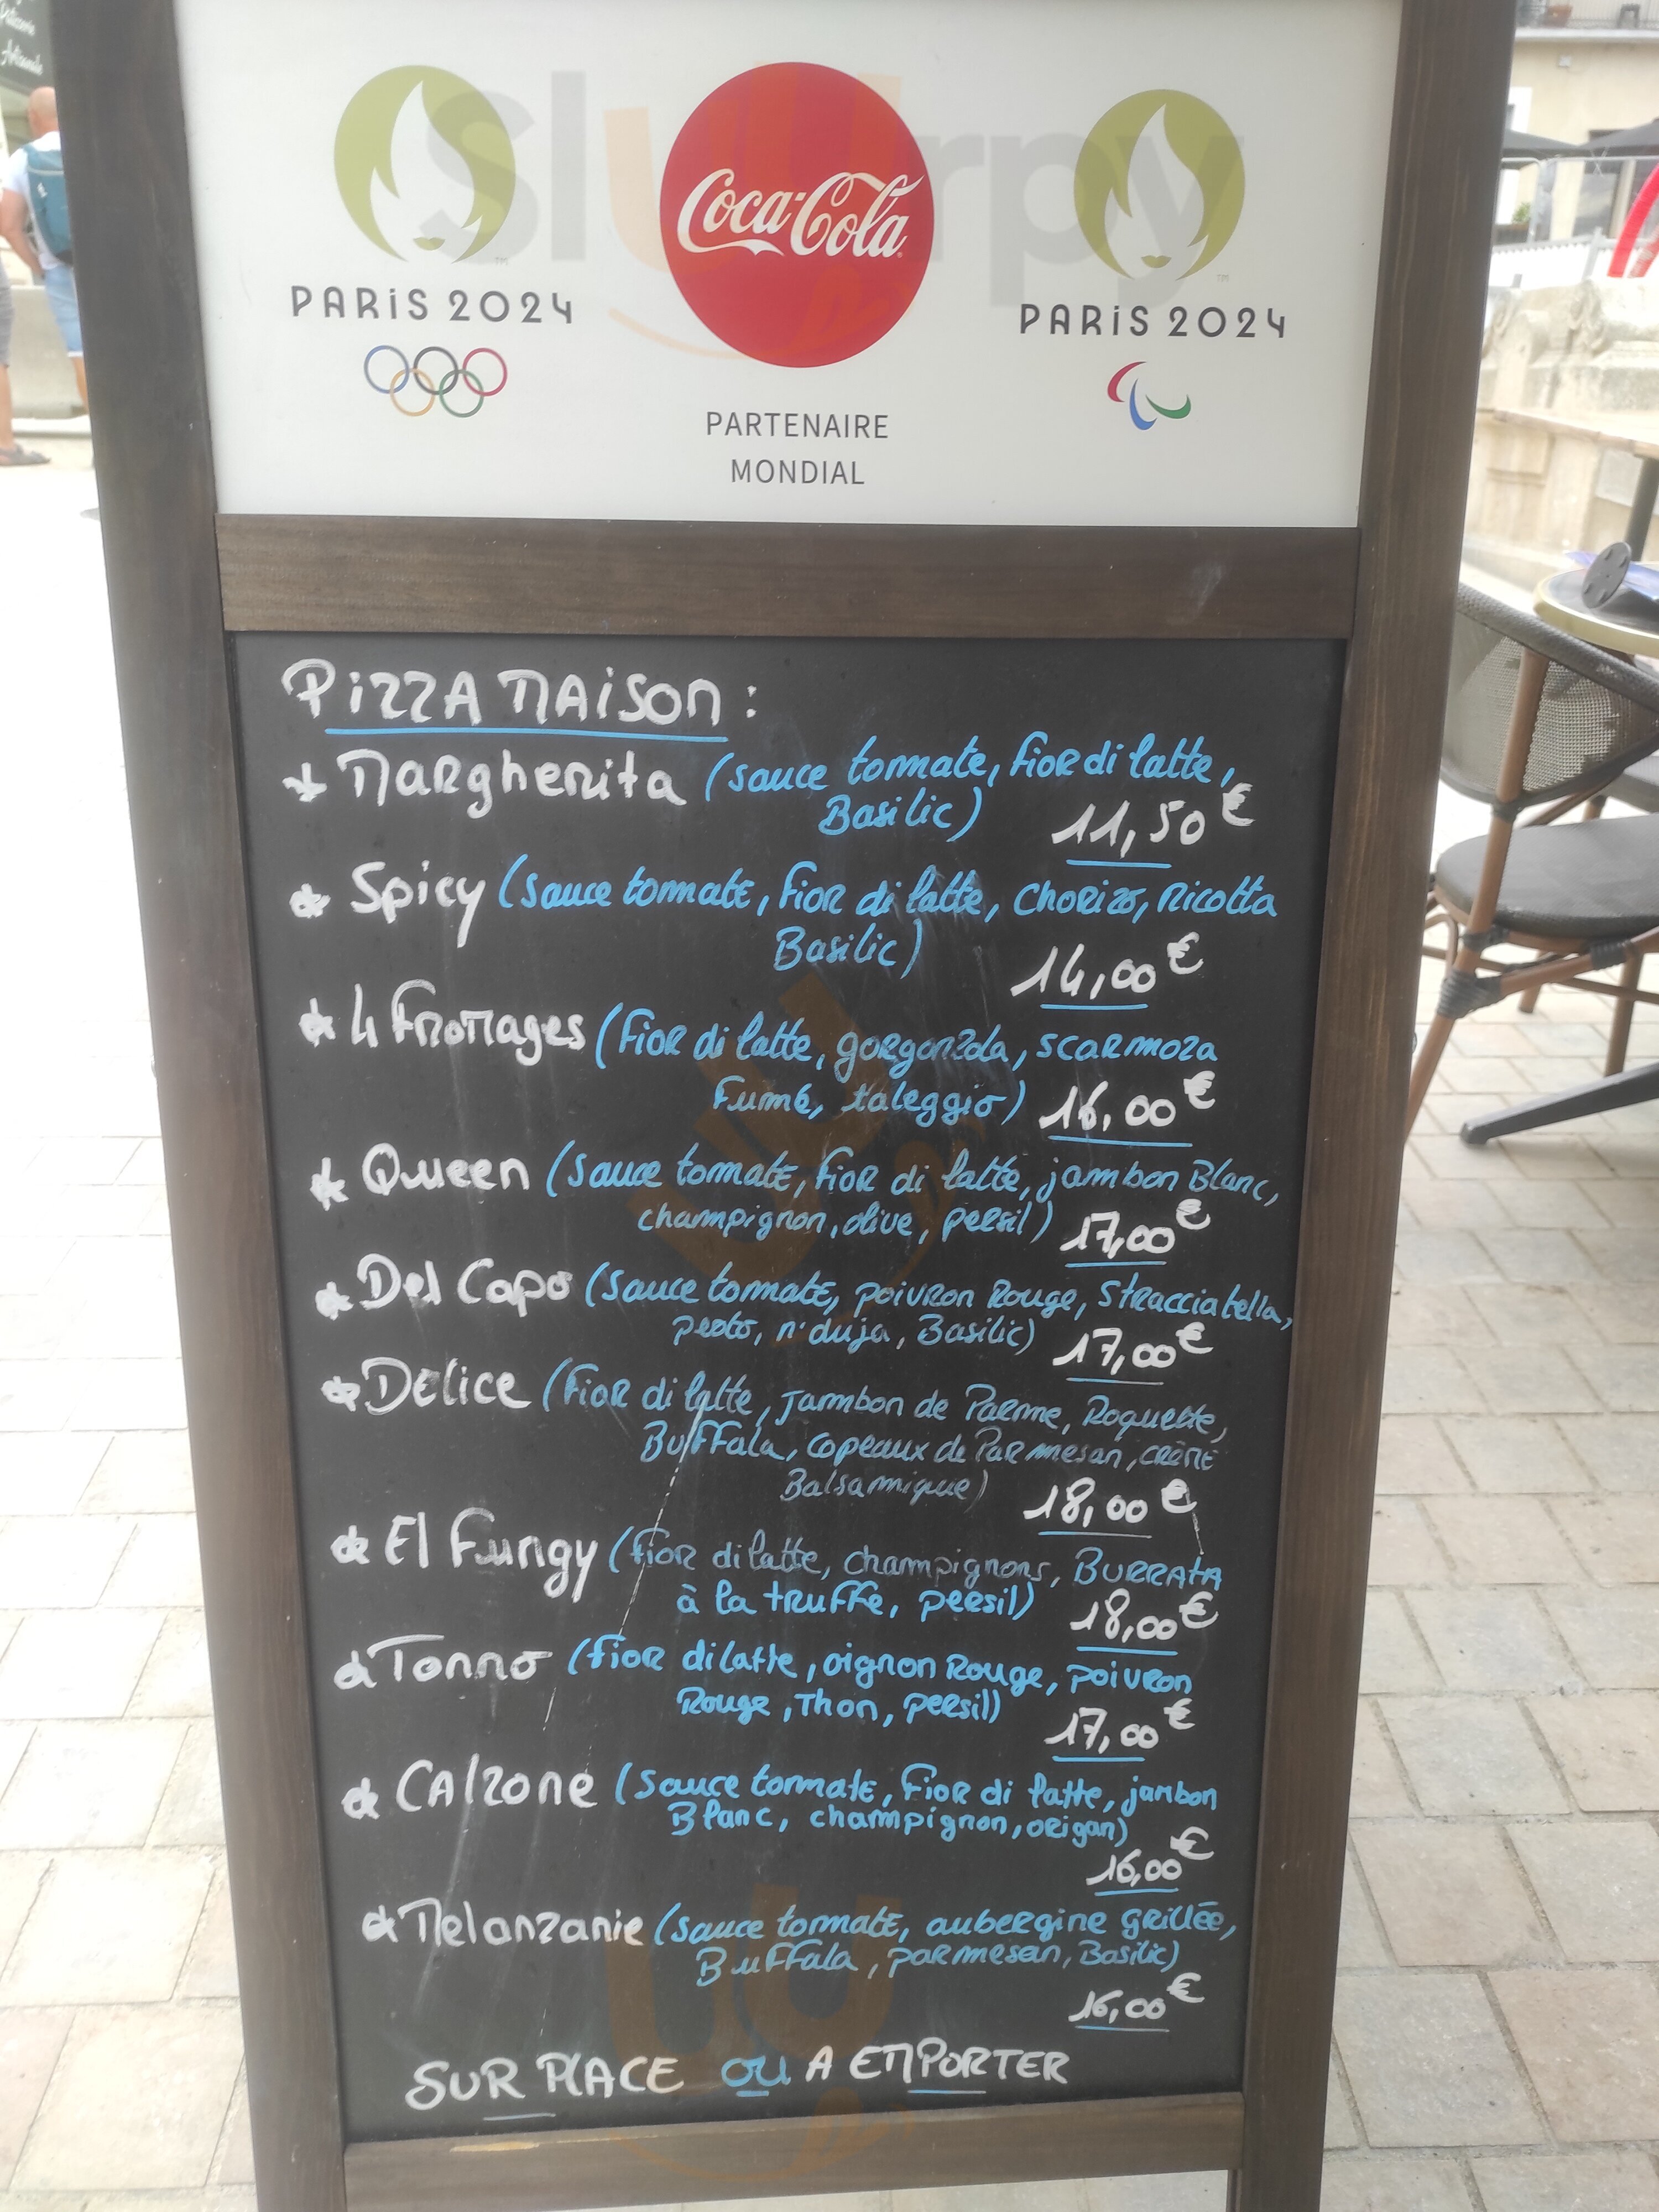 Patisserie
Artisanale
Sluurpy
Coca-Cola
PARiS 2024
PARiS 2024
PARTENAIRE
MONDIAL
PiZZA MAiSON :
Margherita (sauce tomate, fior di latte,
Basilic) 11,50 €
Spicy (sauce tomate, fior di latte, chorizo, ricotta
Basilic) 14,00 €
4 Fromages (fior di latte, gorgonzola, scarmoza
fumé, taleggio) 16,00 €
Queen (sauce tomate, fior di latte, jambon Blanc,
champignon, olive, persil) 17,00 €
Del Capo (sauce tomate, poivron Rouge, Stracciatella,
pesto, n'duja, Basilic) 17,00 €
Délice (fior di latte, jambon de Parme, Roquette,
Buffala, copeaux de Parmesan, crème
Balsamique) 18,00 €
El Fungy (fior di latte, champignons, BURRATA
à la truffe, persil) 18,00 €
Tonno (fior di latte, oignon Rouge, poivron
Rouge, Thon, persil) 17,00 €
CAlzone (sauce tomate, fior di latte, jambon
Blanc, champignon, origan)
16,00 €
Melanzanie (sauce tomate, aubergine grillée,
Buffala, parmesan, Basilic)
16,00 €
SUR PLACE OU A EMPORTER